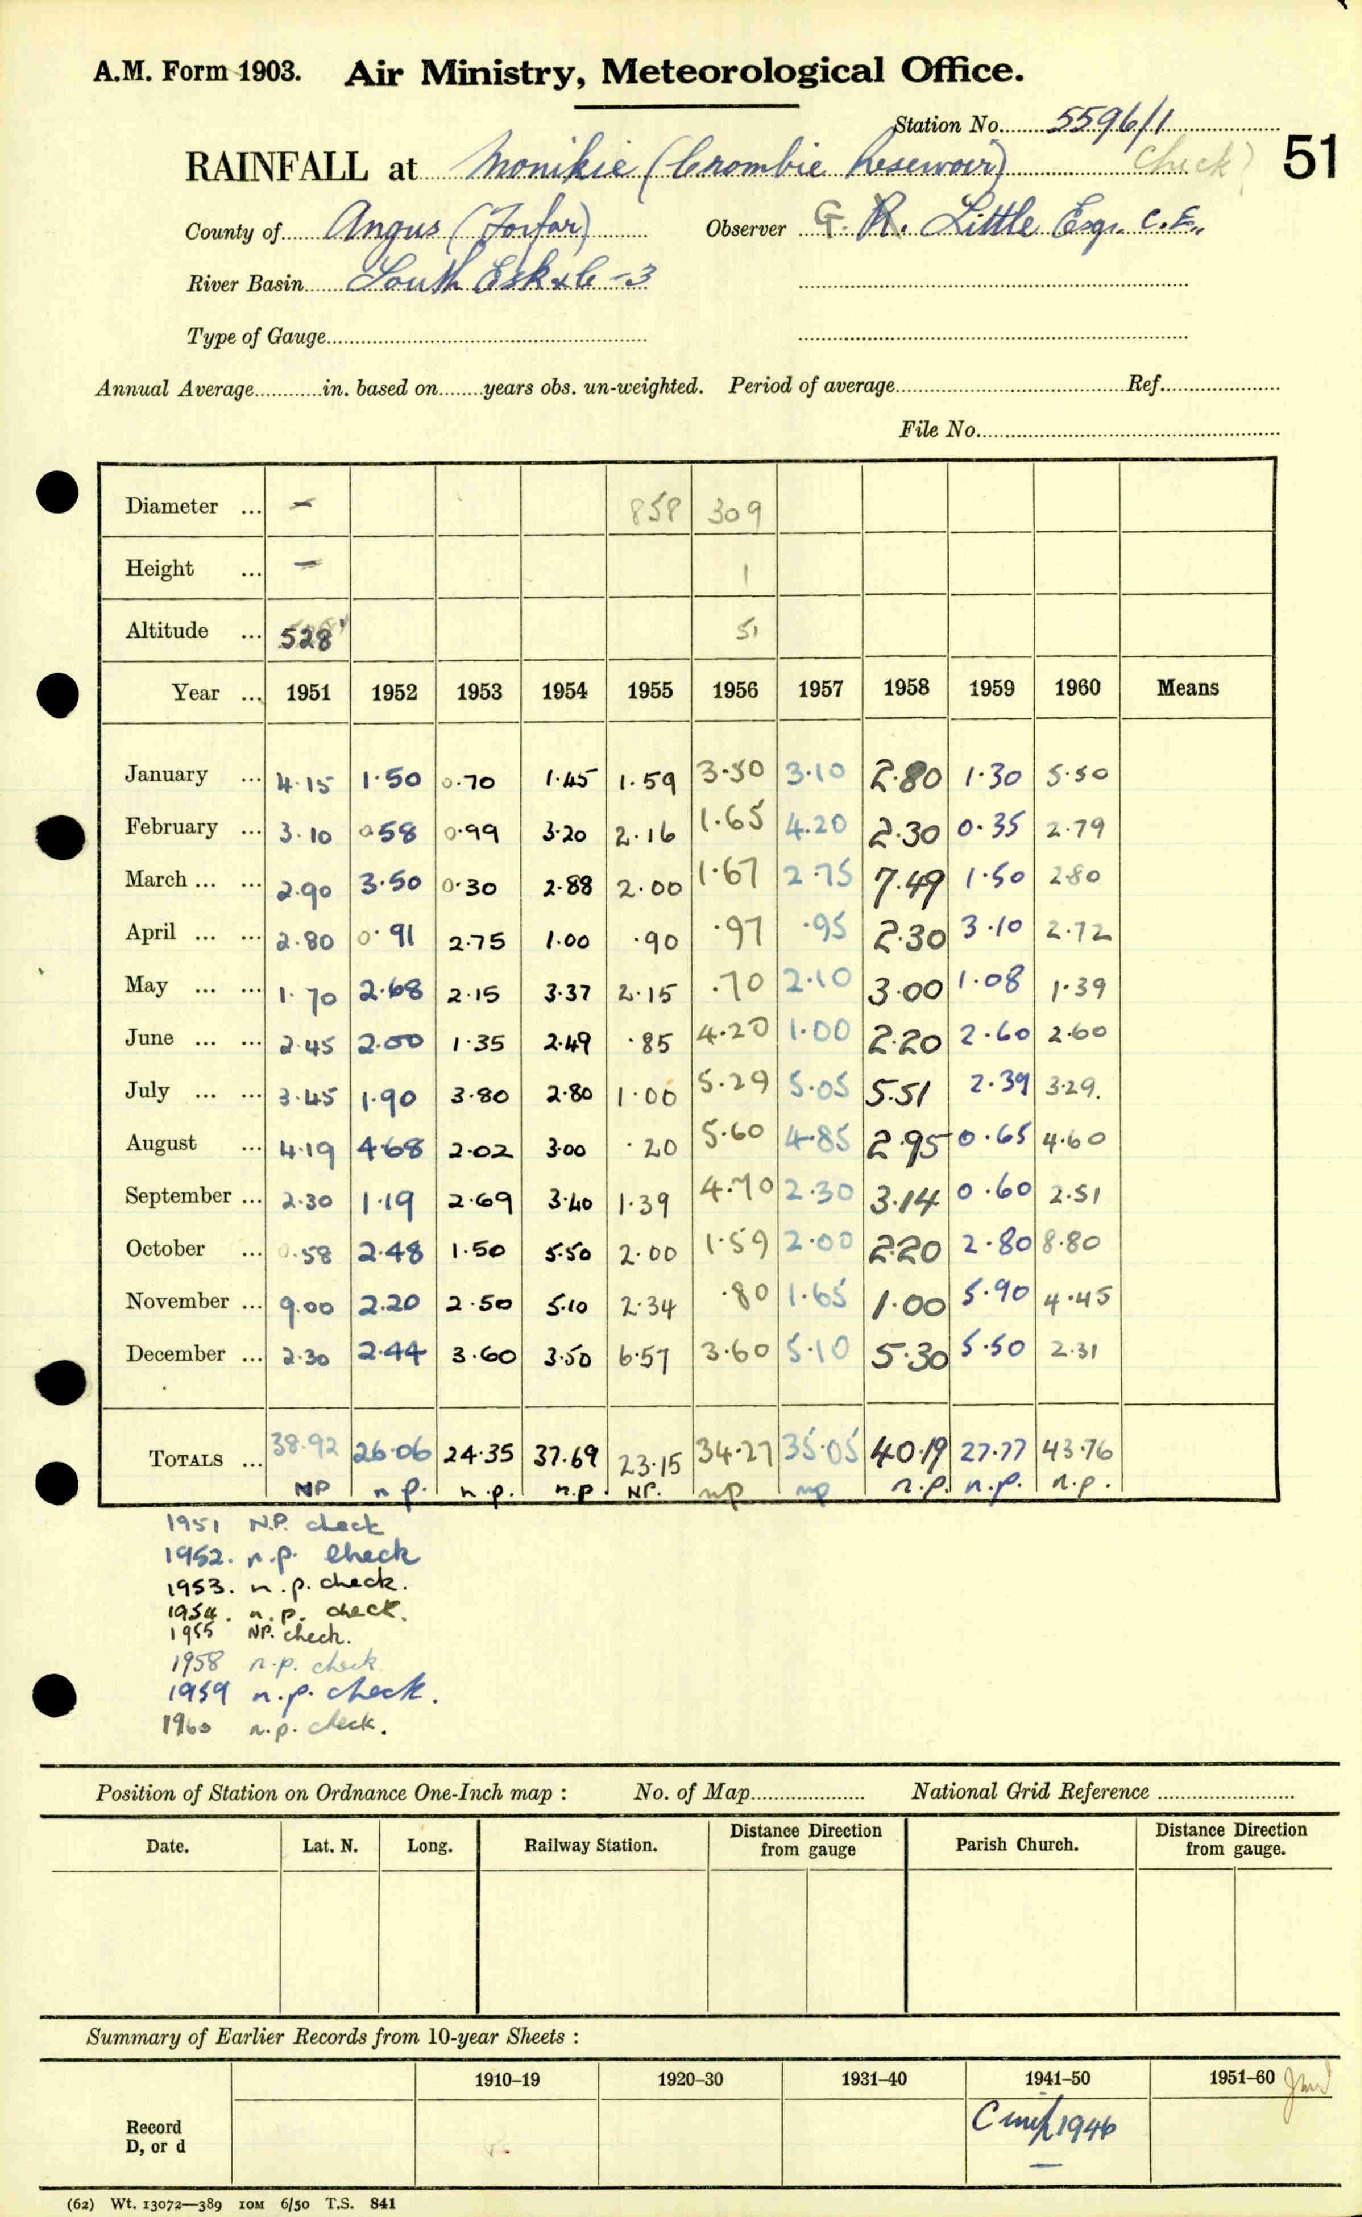 A.M. Form 1903. Air Ministry, Meteorological Office.
Station No. 5596/1
RAINFALL at Monikie (Crombie Reservoir) check 51
County of Angus (Forfar) Observer G. R. Little Esq. C.E.,
River Basin South Esk &c -3
Type of Gauge
Annual Average in. based on years obs. un-weighted. Period of average Ref.
File No.
Diameter ... - 858 309
Height ... - 1
Altitude ... 528 51
Year ... 1951 1952 1953 1954 1955 1956 1957 1958 1959 1960 Means
January ... 4.15 1.50 0.70 1.45 1.59 3.50 3.10 2.80 1.30 5.50
February ... 3.10 0.58 0.99 3.20 2.16 1.65 4.20 2.30 0.35 2.79
March ... ... 2.90 3.50 0.30 2.88 2.00 1.67 2.75 7.49 1.50 2.80
April ... ... 2.80 0.91 2.75 1.00 .90 .97 .95 2.30 3.10 2.72
May ... ... 1.70 2.68 2.15 3.37 2.15 .70 2.10 3.00 1.08 1.39
June ... ... 2.45 2.00 1.35 2.49 .85 4.20 1.00 2.20 2.60 2.60
July ... ... 3.45 1.90 3.80 2.80 1.00 5.29 5.05 5.51 2.39 3.29.
August ... 4.19 4.68 2.02 3.00 .20 5.60 4.85 2.95 0.65 4.60
September ... 2.30 1.19 2.69 3.40 1.39 4.70 2.30 3.14 0.60 2.51
October ... 0.58 2.48 1.50 5.50 2.00 1.59 2.00 2.20 2.80 8.80
November ... 9.00 2.20 2.50 5.10 2.34 .80 1.65 1.00 5.90 4.45
December ... 2.30 2.44 3.60 3.50 6.57 3.60 5.10 5.30 5.50 2.31
TOTALS ... 38.92 26.06 24.35 37.69 23.15 34.27 35.05 40.19 27.77 43.76
NP n.p. n.p. n.p. NP. np np n.p. n.p. n.p.
1951 N.P. check
1952. n.p. check
1953. n.p. check.
1954. n.p. check.
1955 NP. check.
1958 n.p. check
1959 n.p. check.
1960 n.p. check.
Position of Station on Ordnance One-Inch map : No. of Map National Grid Reference
Date. Lat. N. Long. Railway Station. Distance from gauge Direction Parish Church. Distance from gauge. Direction
Summary of Earlier Records from 10-year Sheets :
1910–19 1920–30 1931–40 1941–50 1951–60
Record D, or d 1946
(62) Wt. 13072—389 10M 6/50 T.S. 841